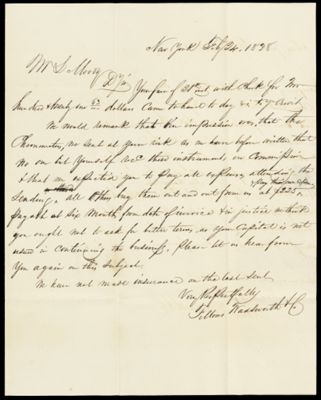 New York Feby 24. 1838
Mr S. Morey
D Sir Your favr of 21st inst. with Check for Two
hundred & twenty six dollars came to hand to day & is to yr Credit
We would remark that the impression was, that the
Thermometers, we sent at your risk as we have before written that
no one but Yourself had these instruments on Commission
& that we expected you to pay all expenses attending the
sending, all others buy them out and out from us at $225
payable at Six Months from date of invoice & in justice we think
you ought not to ask for better terms, as your Capital is not
used in continuing the business. Please let us hear from
You again on this subject.
We have not made insurance on the last sent
Very Respectfully
Fellows Wadsworth & Co